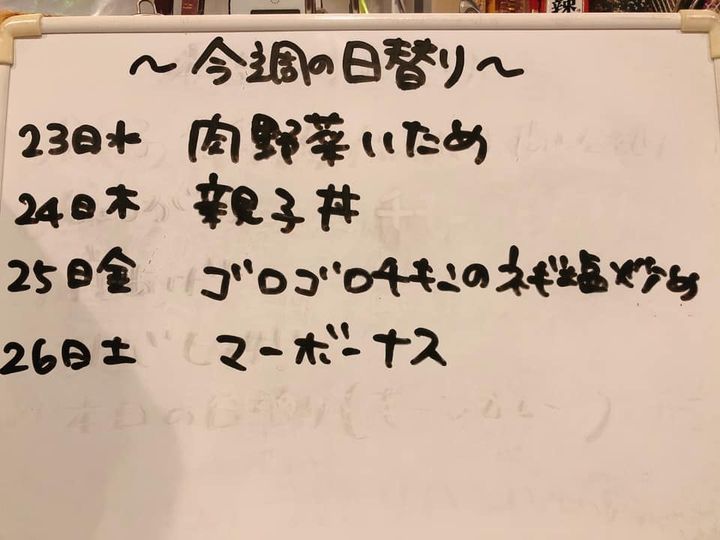 辣
～今週の日替り～
23日水 肉野菜いため
24日木 親子丼
25日金 ゴロゴロチキンのネギ塩炒め
26日土 マーボーナス